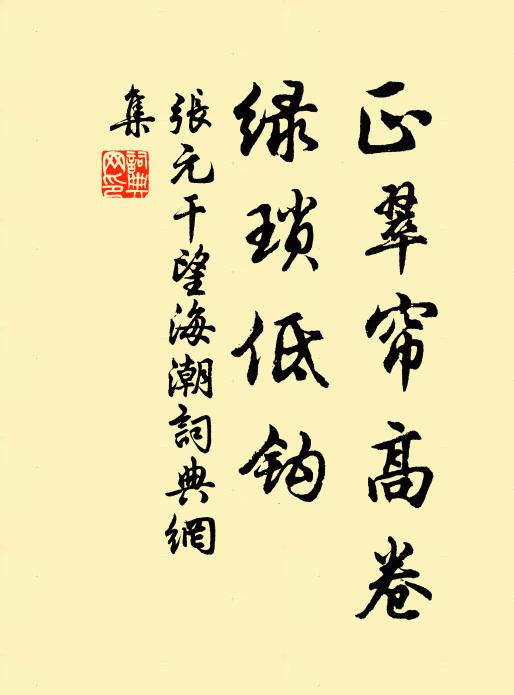 正翠帘高卷
绿琐低钩
張元干望海潮詞典網
集
詞典网印